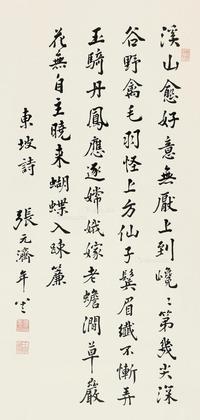 溪山愈好意無厭上到巉巉第幾尖深
谷野禽毛羽怪上方仙子鬢眉纖不慚弄
玉騎丹鳳應逐嫦娥嫁老蟾澗草巖
花無自主曉來蝴蝶入疎簾
東坡詩
張元濟年